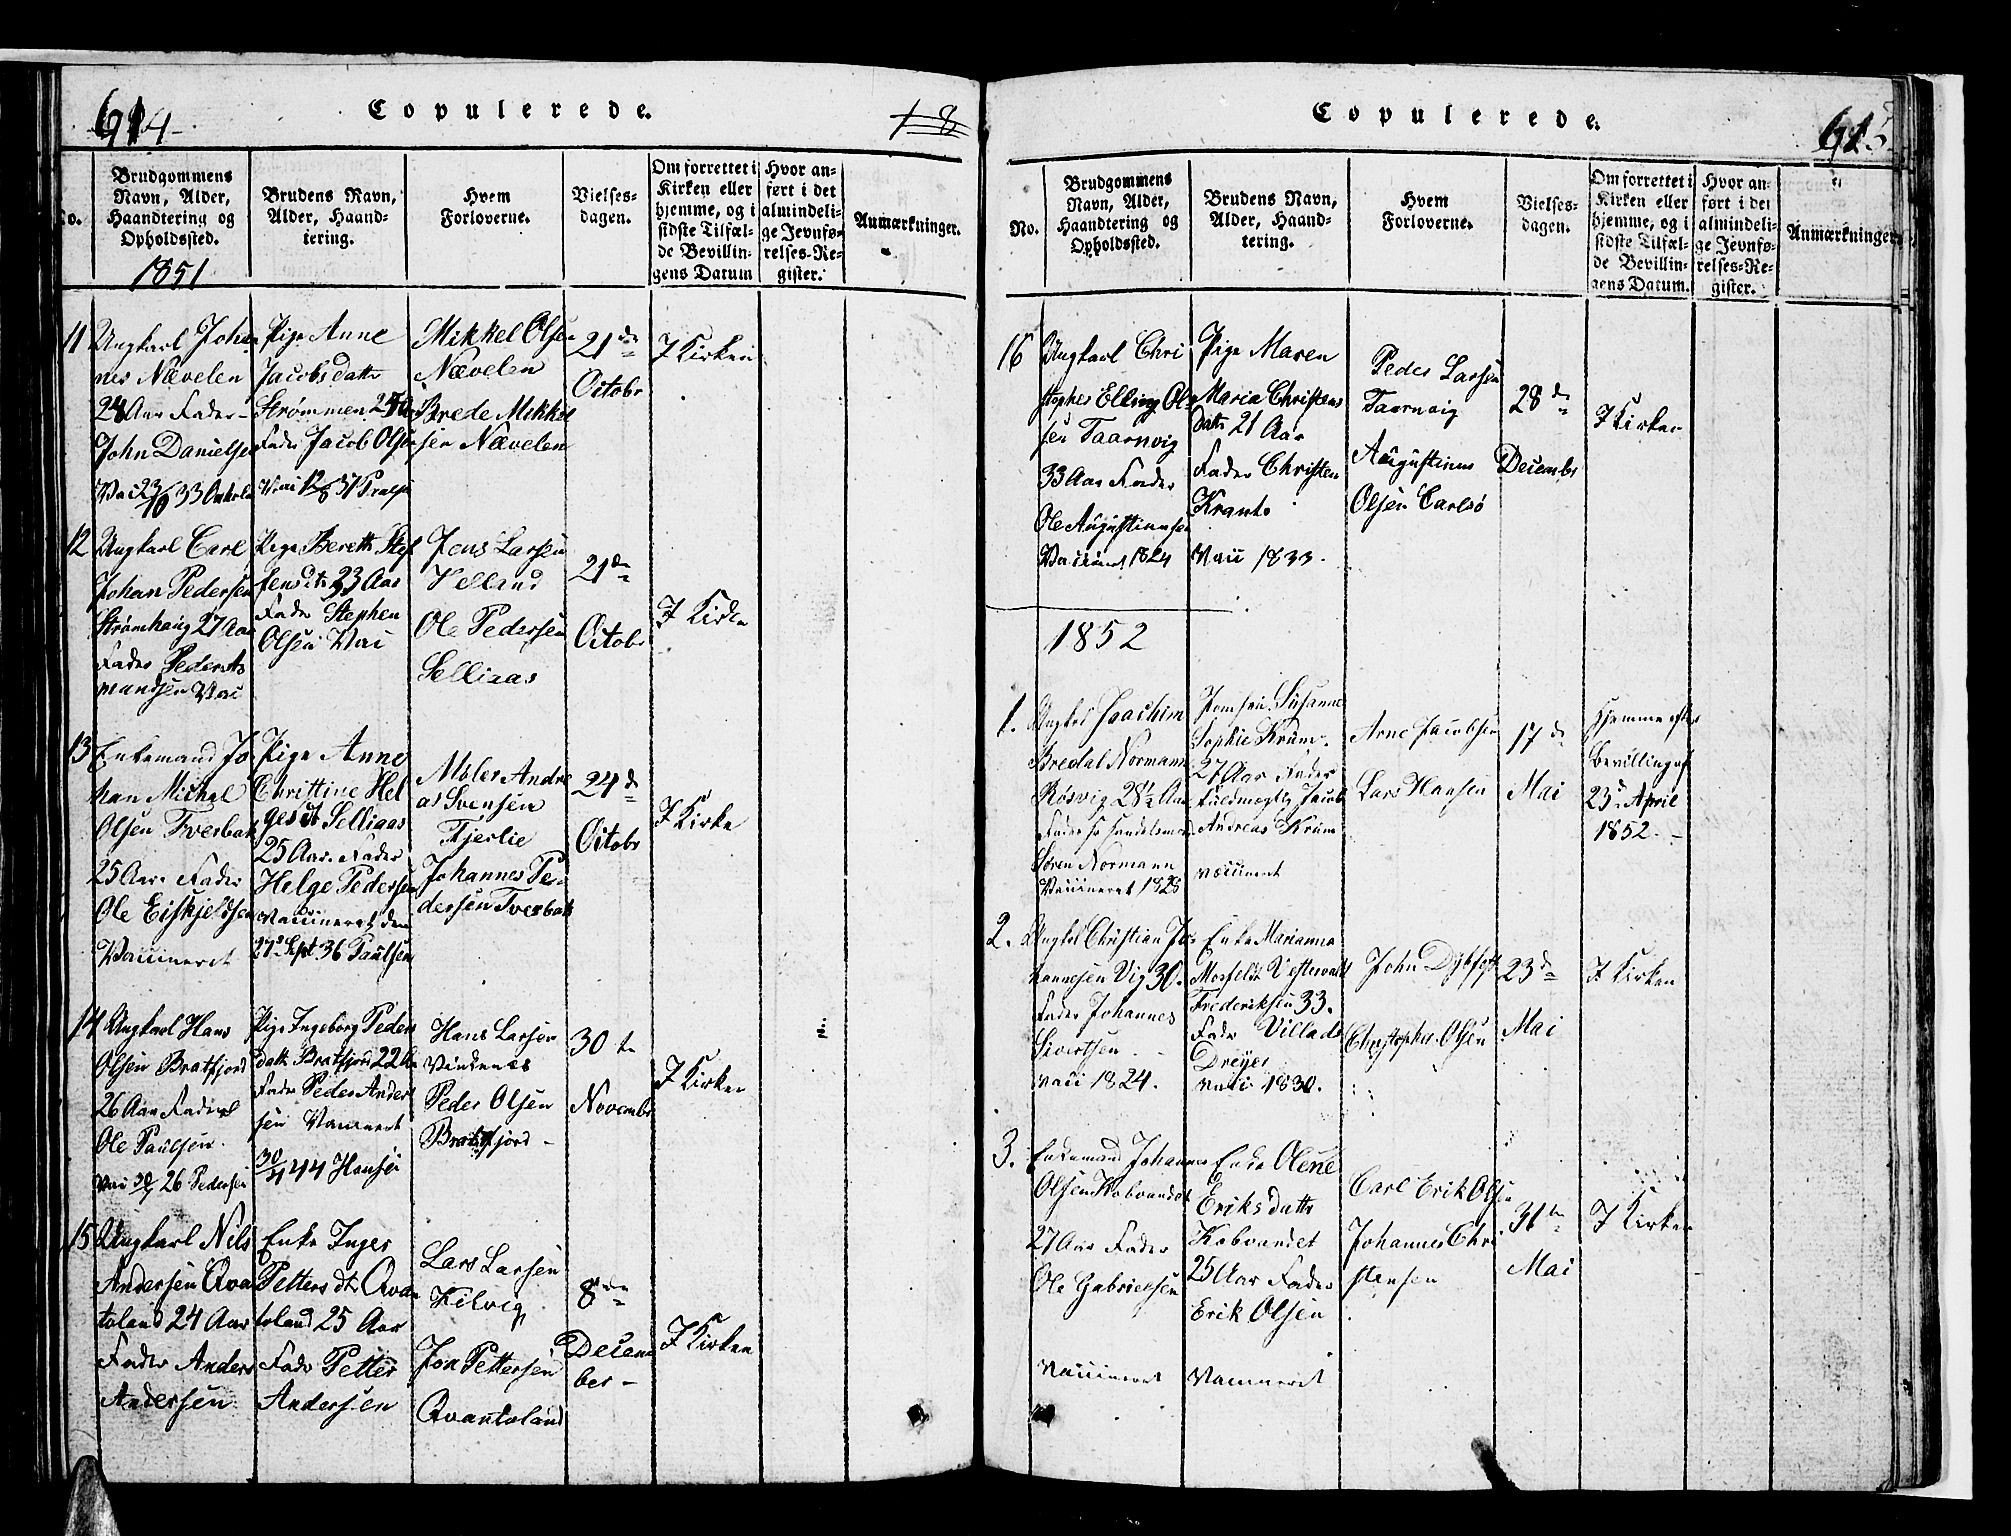 614
Copulerede.
18
No.
Brudgommens
Navn, Alder,
Haandtering og
Opholdssted.
Brudens Navn,
Alder, Haand-
tering.
Hvem
Forloverne.
Vielses-
dagen.
Om forrettet i
Kirken eller
hjemme, og i
sidste Tilfæl-
de Bevillin-
gens Datum
Hvor an-
ført i det
almindeli-
ge Jevnfø-
relses-Re-
gister.
Anmærkninger.
1851
11
Ungkarl Johan
nes Nævelen
24 Aar Fader
John Danielsen
Pige Anne
Jacobsdatt
Strømmen
Fader Jacob Olsen
Mikkel Olsen
Nævelen
Brede Mikkel
sen Nævelen
21de
Octobr
I Kirken
12
Ungkarl Carl
Johan Pedersen
Strømhaug 27 Aar
Fader Peder
mandsen Vac
Pige Bereth Stef
fensdt 23 Aar
Fader Stephen
Olsen Vac
Jens Larsen
Ole Pedersen
Selliaas
21de
Octobr
I Kirken
13
Enkemand Jo
han Michel
Olsen Tverbak
25 Aar Fader
Ole Eiskjeldsen
Vaccineret
Pige Anne
Christine Hel
gesdt Selliaas
25 Aar Fader
Helge Pedersen
vaccineret den
27de Sept 36 Paulsen
Andre
as Svensen
Johannes Pe
dersen Tverbak
24de
Octobr
I Kirke
14
Ungkarl Hans
Olsen Bratfjord
26 Aar Fader
Ole Paulsen
Vac 30/7 26 Pedersen
Pige Ingeborg Peders
datt Bratfjord 22 Aar
Fader Peder Ander
sen Vaccineret
44 Hansen
Hans Larsen
Peder Olsen
Bratfjord
30te
Novembr
I Kirken
15
Ungkarl Nils
Andersen Qvan
toland 24 Aar
Fader Anders
Andersen
Enke Inger
Petters dt Qvan
toland 25 Aar
Fader Petter
Andersen
Lars Larsen
Kilvig
Jon Pettersen
Qvantoland
8de
Decem
ber
I Kirken
615
Copulerede.
No.
Brudgommens
Navn, Alder,
Haandtering og
Opholdssted.
Brudens Navn,
Alder, Haand-
tering.
Hvem
Forloverne.
Vielses-
dagen.
Om forrettet i
Kirken eller
hjemme, og i
sidste Tilfæl-
de Bevillin-
gens Datum.
Hvor an-
ført i det
almindeli-
ge Jevnfø-
relses-Re-
gister.
Anmærkninger
16
Ungkarl Chri
stopher Elling Ol
sen Taarnvig
33 Aar Fader
Ole Augustinusen
Vaccineret 1824
Pige Maren
Maria Christens
datt 21 Aar
Fader Christen
Krantz
Vacc 1833.
Peder Larsen
Taarnvig
Augustinus
Olsen Carlsø
28de
Decembr
I Kirken
1852
1.
Ungkl Joachim
Bredal Normann
Røsvig 28½ Aar
Søren Normann
Vaccineret 1828
Susanne
Sophie Krüm.
27 Aar Fader
Andreas Krüm
vaccineret
Arne Jacobsen
Lars Hansen
17de
Mai
Hjemme efter
Bevilling af
23de April
1852.
2.
Ungkl Christian Jo
hannesen Vig 30.
Fader Johannes
Sivertsen
vacc 1824.
Enke Marianna
Frederiksen 33.
Fader Villads
Dreyer
vacc. 1830.
John
Christopher Olsen
23de
Mai
I Kirken
3.
Enkemand Johannes
Olsen Kobvandet
27 Aar Fader
Ole Gabrielsen
Vaccineret
Enke Olene
Eriksdatt
Kobvandet
25 Aar Fader
Erik Olsen
Vaccineret
Carl Erik Olsen
Johannes Chri
stensen
31te
Mai
I Kirken